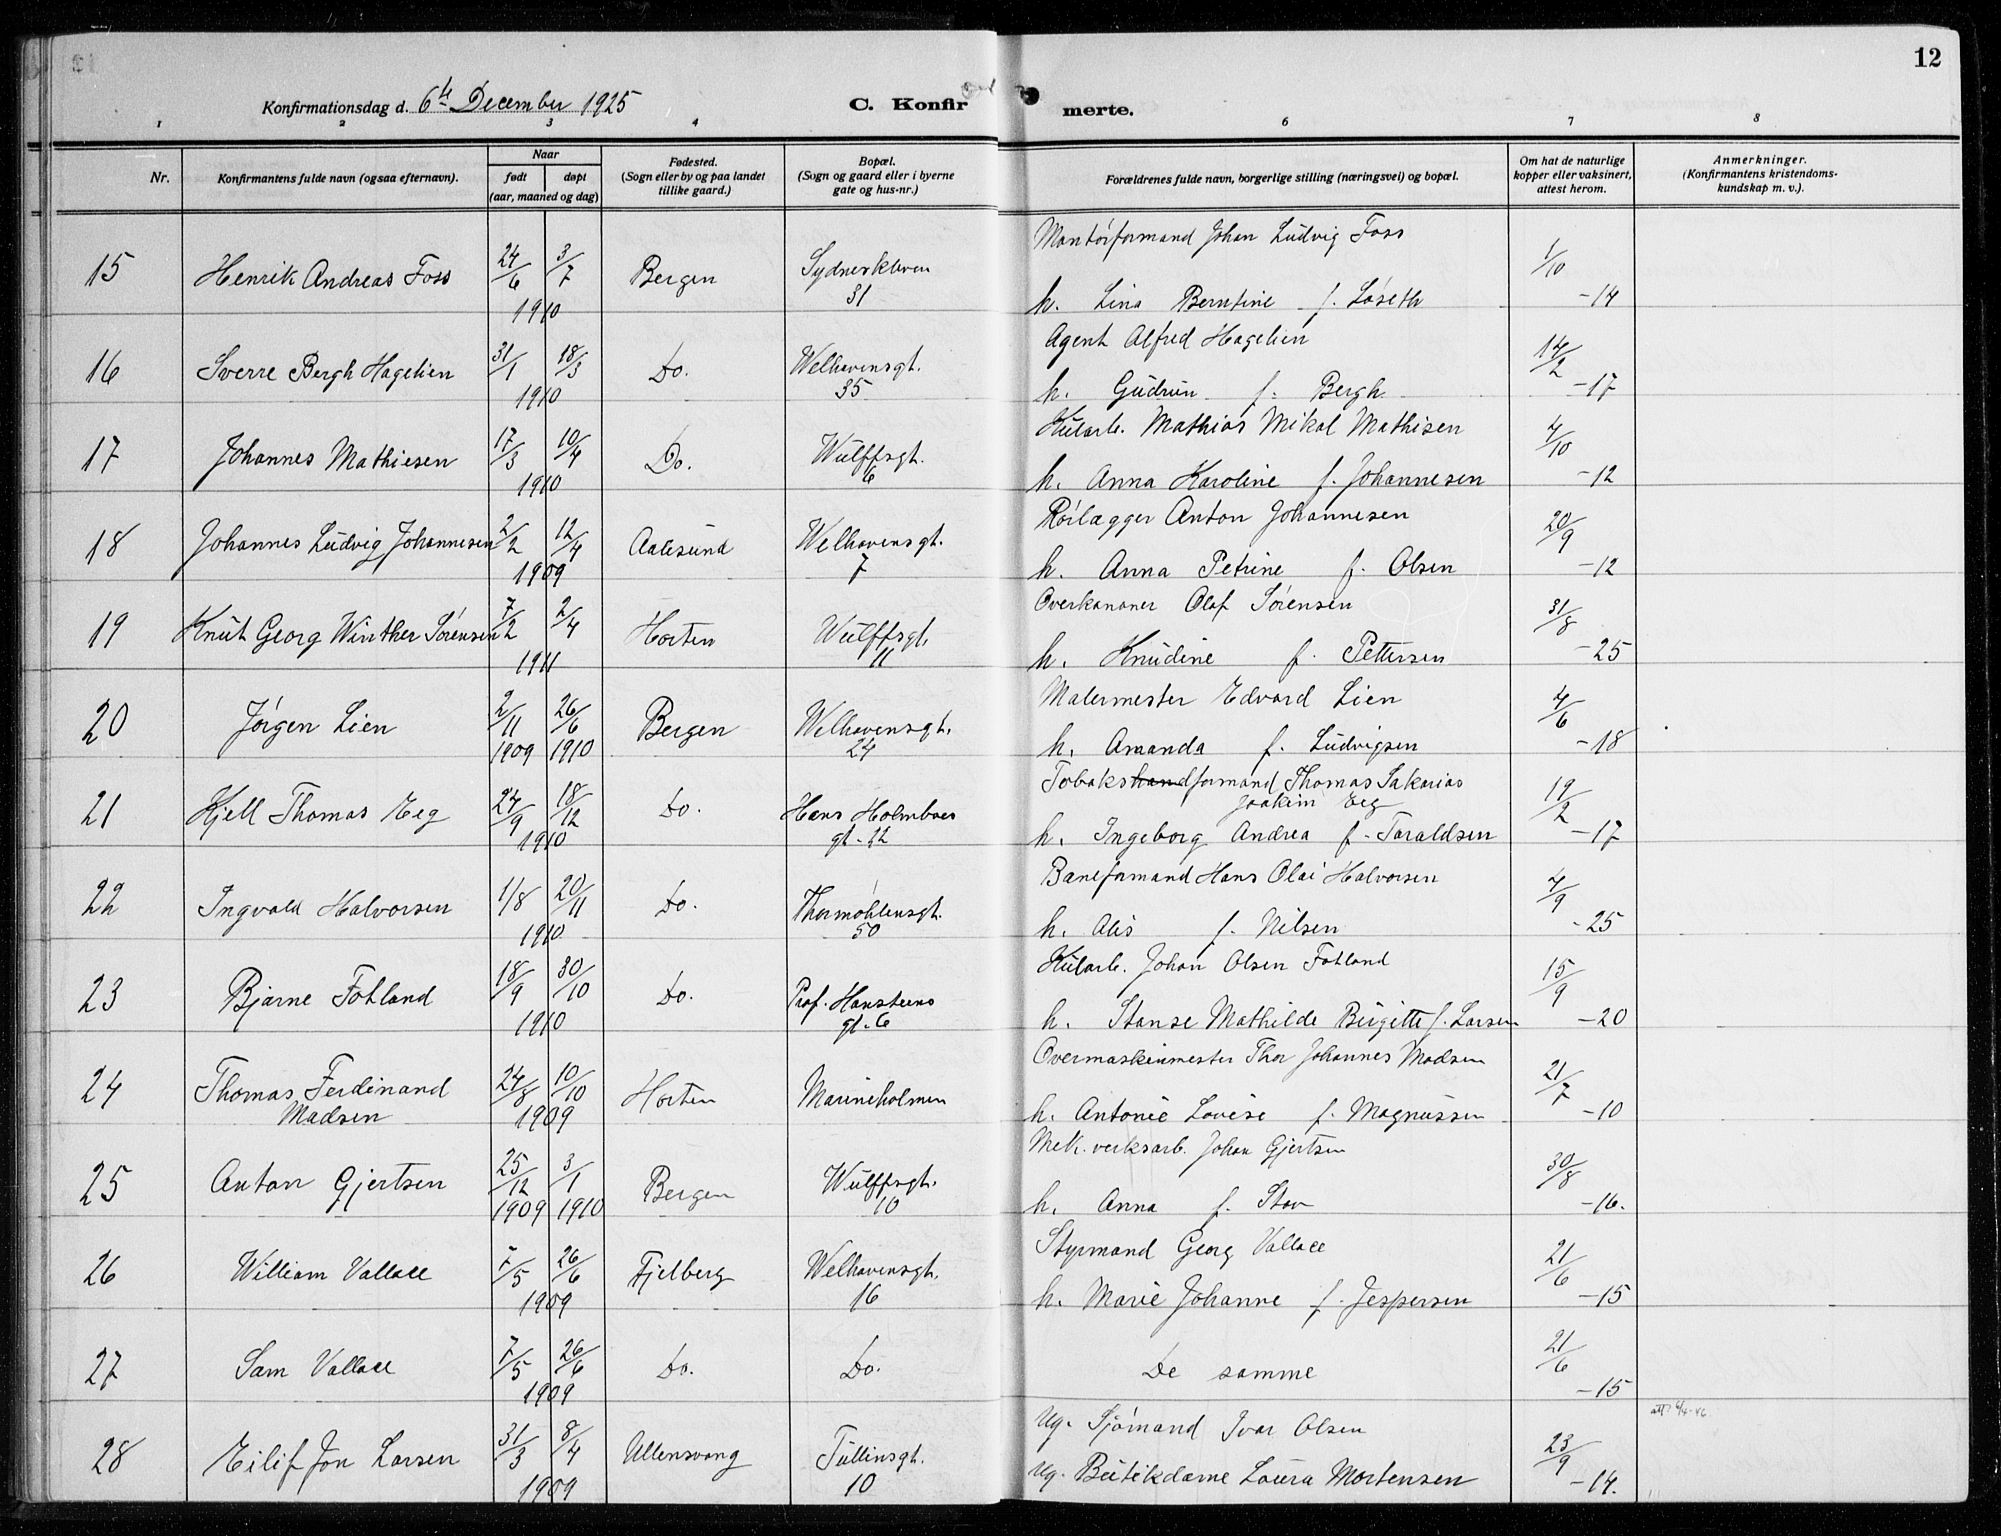 12
Konfirmationsdag d. 6te December 1925
C. Konfir
merte.
1 2 3 4 6 7 8
Nr.
Konfirmantens fulde navn (ogsaa efternavn).
Naar
født døpt
(aar, maaned og dag)
Fødested.
(Sogn eller by og paa landet
tillike gaard.)
Bopæl.
(Sogn og gaard eller i byerne
gate og hus-nr.)
Forældrenes fulde navn, borgerlige stilling (næringsvei) og bopæl.
Om hat de naturlige
kopper eller vaksinert,
attest herom.
Anmerkninger.
(Konfirmantens kristendoms-
kundskap m. v.).
Montørformand Johan Ludvig Foss
15 Henrik Andreas Foss 24/6 3/7 Bergen Sydneskleven 1/10
1910 31 h. Lina Berntine f. Løseth -14
Agent Alfred Hagelien
16 Sverre Bergh Hagelien 31/1 18/3 Do. Welhavensgt. 14/2
1910 35 h. Gudrun f. Bergh -17
Kularb. Mathias Mikal Mathisen
17 Johannes Mathiesen 17/3 10/4 Do. Wulffsgt. 4/10
1910 6 h. Anna Karoline f. Johannesen -12
Rørlægger Anton Johannesen
18 Johannes Ludvig Johannesen 2/2 12/4 Aalesund Welhavensgt. 20/9
1909 7 h. Anna Petrine f. Olsen -12
Overkanoner Olaf Sørensen
19 Knut Georg Winther Sørensen 7/2 2/4 Horten Wulffsgt. 31/8
1911 11 h. Knudine f. Pettersen -25
Malermester Edvard Lien
20 Jørgen Lien 2/11 26/6 Bergen Welhavensgt. 4/6
1909 1910 24 h. Amanda f. Ludvigsen -18
Tobakshandformand Thomas Sakarias
Joakim Eeg
21 Kjell Thomas Eeg 24/9 18/12 Do. Hans Holmboes 19/2
1910 gt. 22 h. Ingeborg Andrea f. Taraldsen -17
Baneformand Hans Olai Halvorsen
22 Ingvald Halvorsen 1/8 20/11 Do. Thormøhlensgt. 4/9
1910 50 h. Alis f. Nilsen -25
Kularb. Johan Olsen Fotland
23 Bjarne Fotland 18/9 30/10 Do. Prof. Hansteens 15/9
1910 gt. 6 h. Stanse Mathilde Birgitte f. Larsen -20
Overmaskinmester Thor Johannes Madsen
24 Thomas Ferdinand 24/8 10/10 Horten Marineholmen 21/7
Madsen 1909 h. Antonie Lovise f. Magnussen -10
Mek. verksarb. Johan Gjertsen
25 Anton Gjertsen 25/12 3/1 Bergen Wulffsgt. 30/8
1909 1910 10 h. Anna f. Stav -16.
Styrmand Georg Vallace
26 William Vallace 7/5 26/6 Fjelberg Welhavensgt. 21/6
1909 16 h. Marie Johanne f. Jespersen -15
27 Sam Vallace 7/5 26/6 Do. Do. De samme 21/6
1909 -15
Ug. Sjømand Ivar Olsen att. 6/4-46
28 Eilif Jon Larsen 31/3 8/4 Ullensvang Tullinsgt. 23/9
1909 10 Ug. Butikdame Laura Mortensen -14.